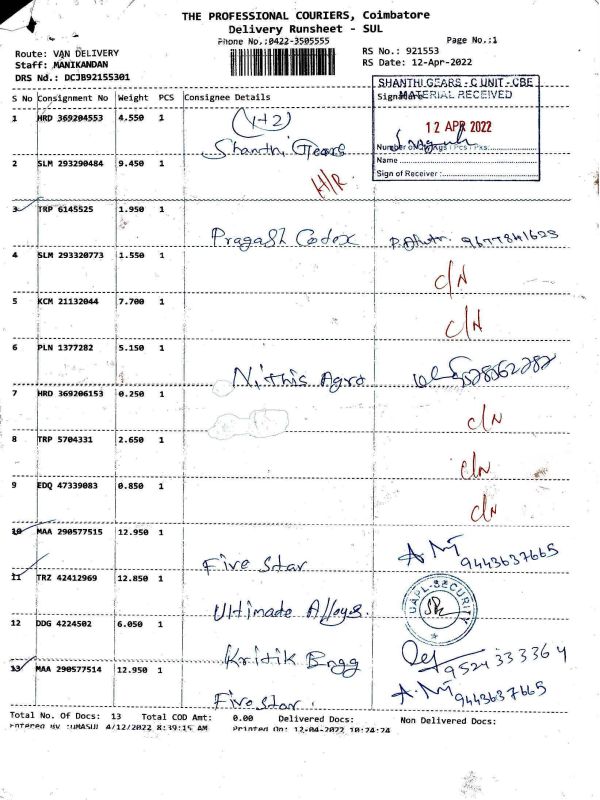 THE PROFESSIONAL COURIERS, Coimbatore
Delivery Runsheet - SUL
Phone No.:0422-3505555
Page No.:1
Route: VAN DELIVERY
RS No.: 921553
Staff: MANIKANDAN
RS Date: 12-Apr-2022
DRS Nd.: DCJB92155301
SHANTHI GEARS - C UNIT - CBE
S No Consignment No Weight PCS Consignee Details Signature
MATERIAL RECEIVED
1 HRD 369204553 4.550 1 (1+2)
12 APR 2022
Shanthi Gears
Name
Sign of Receiver :
2 SLM 293290484 9.450 1
H/R
3 TRP 6145525 1.950 1
Pragash Codex 9677841625
4 SLM 293320773 1.550 1
C/N
5 KCM 21132044 7.700 1
C/N
6 PLN 1377282 5.150 1
Nithis Agro
7 HRD 369206153 0.250 1
C/N
8 TRP 5704331 2.650 1
C/N
9 EDQ 47339083 0.850 1
C/N
10 MAA 290577515 12.950 1
Five Star 9443637665
11 TRZ 42412969 12.850 1
Ultimade Alloys. UAPL-SECURITY
12 DDG 4224502 6.050 1
Kritik Engg 9524333364
13 MAA 290577514 12.950 1
Five star. 9443637665
Total No. Of Docs: 13 Total COD Amt: 0.00 Delivered Docs: Non Delivered Docs:
Entered By :UMASUL 4/12/2022 8:39:15 AM Printed On: 12-04-2022 10:24:24